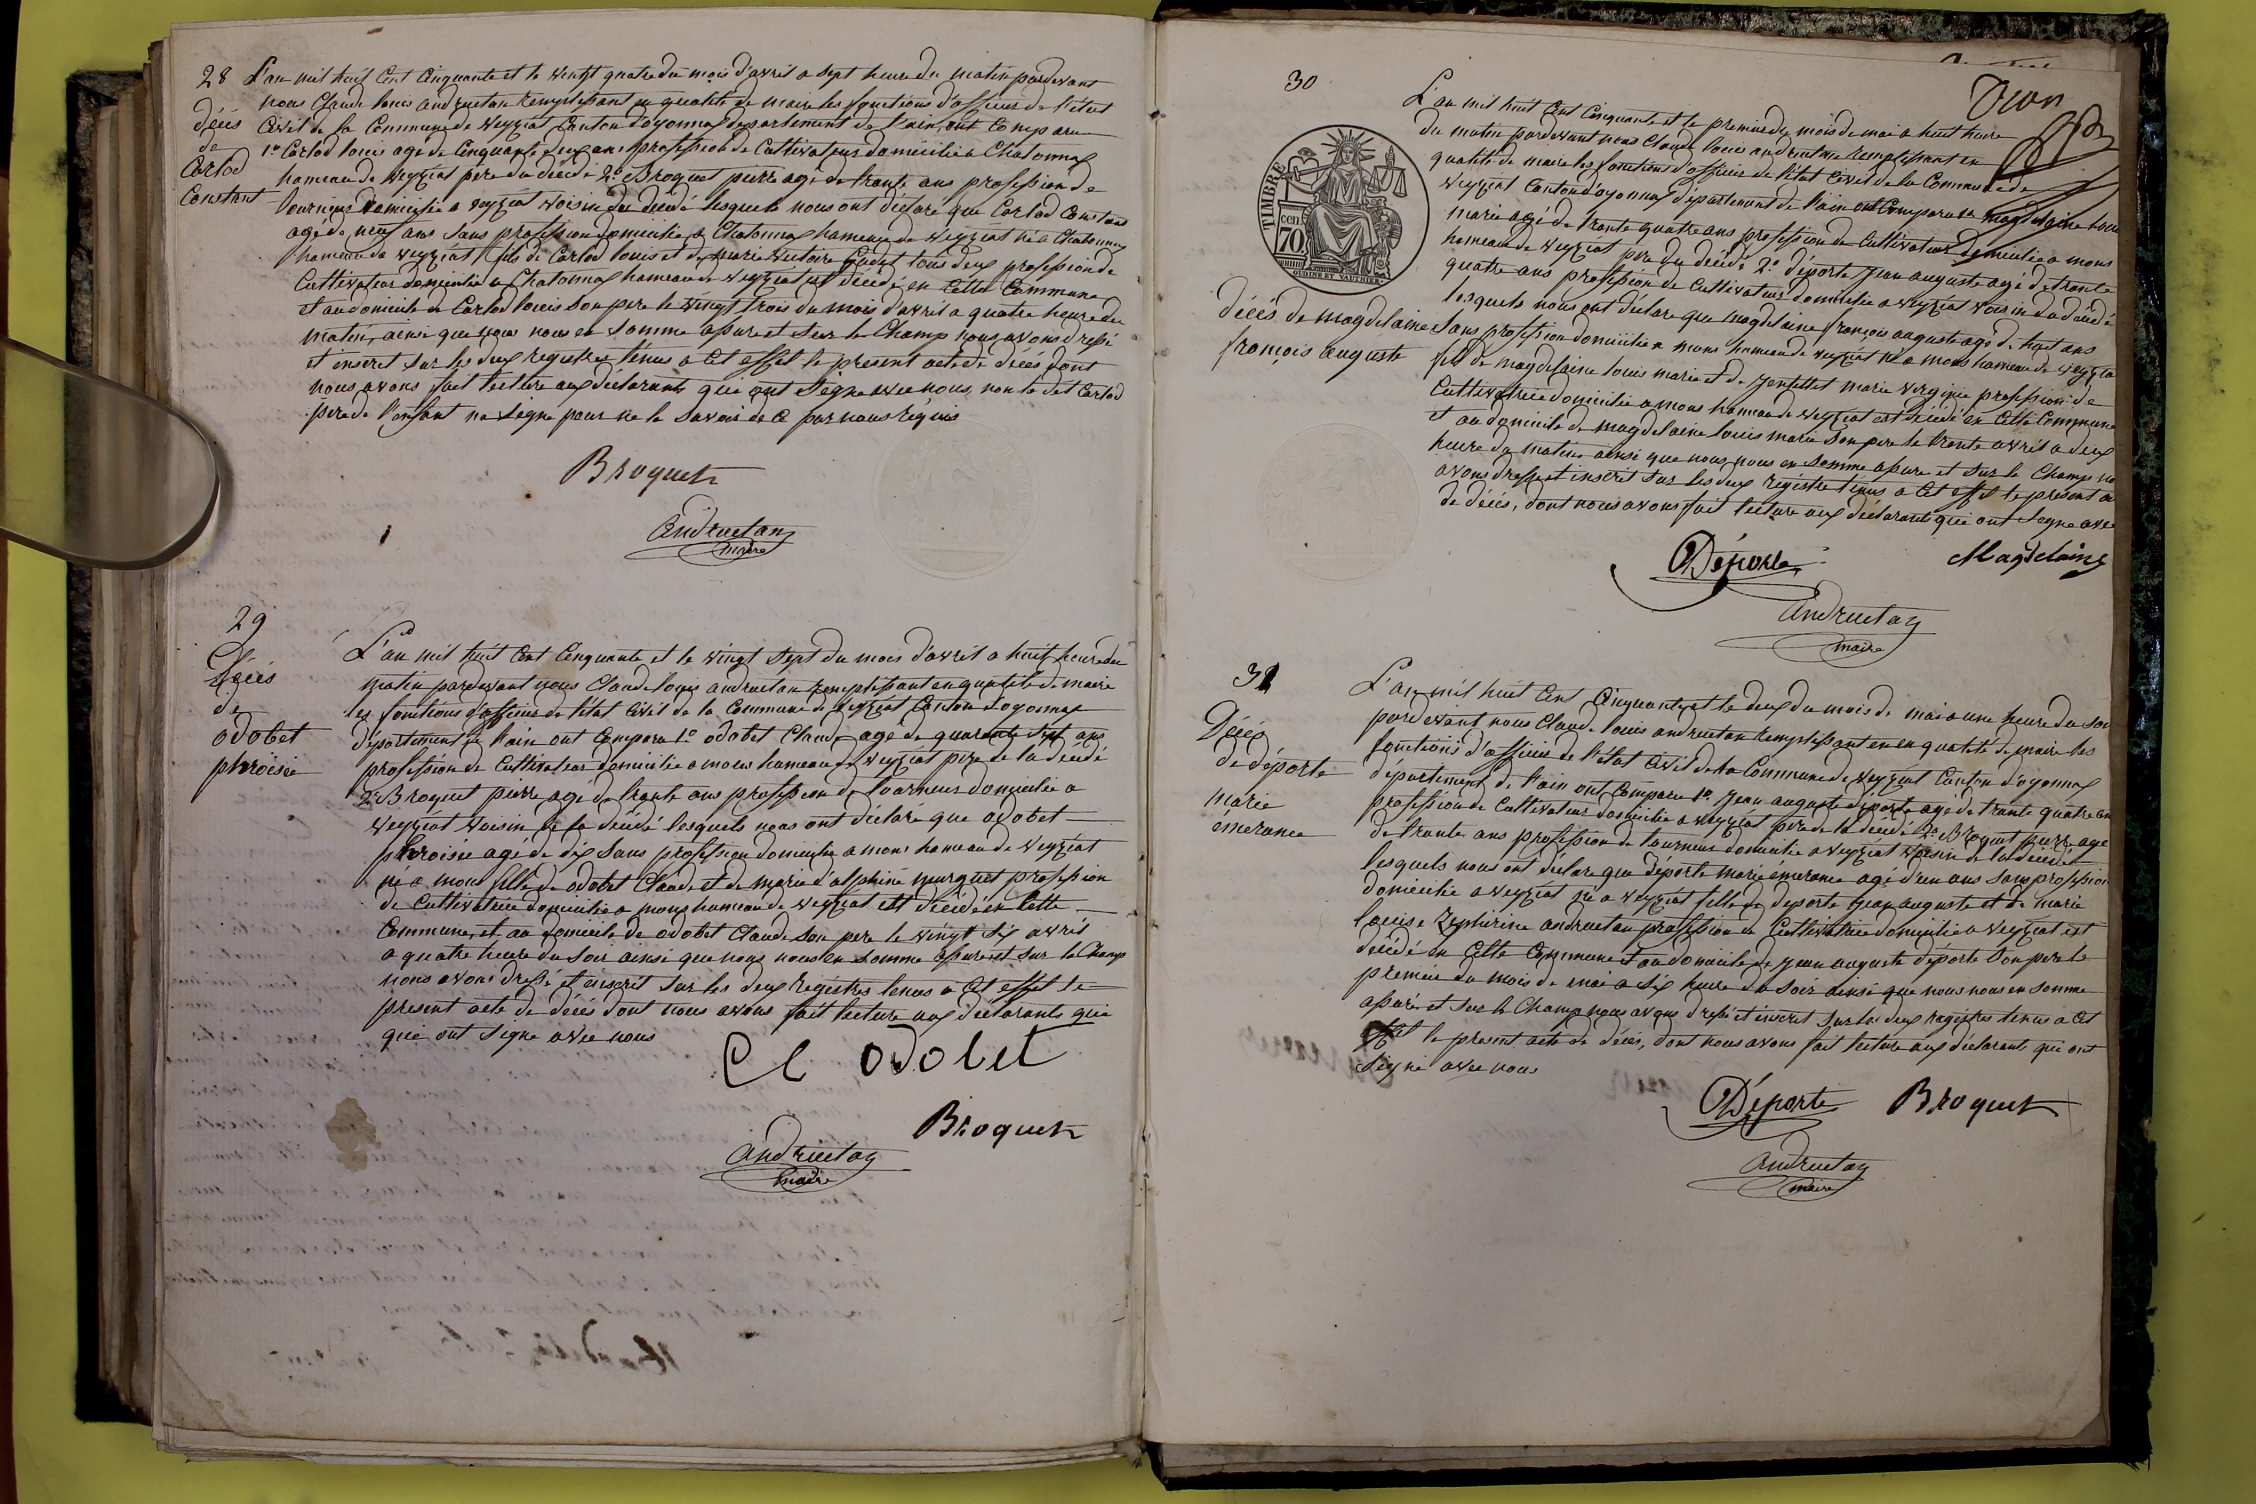 28
décès
de
Carlod
Constant
L'an mil huit cent cinquante et le vingt quatre du mois d'avril a sept heure du matin pardevant
nous Claude louis andruetan remplissant en qualité de maire les fonctions d'officier de l'état
Civil de la Commune de Veyziat Canton d'oyonnax département de l'ain, ont comparu
1º Carlod louis agé de Cinquante deux ans profession de Cultivateur domicilié a Chatonnax
hameau de Veyziat pere du décédé 2º Broquet pierre agé de trante ans profession de
tourneur domicilié a veyziat voisin du décédé lesquels nous ont déclaré que Carlod Constant
agé de neuf ans sans profession domicilié a Chatonnax hameau de Veyziat né a Chatonnax
hameau de veyziat fils de Carlod louis et de marie victoire Godet tous deux profession de
Cultivateur domicilié a Chatonnax hameau de Veyziat est décédé en Cette Commune
et au domicile de Carlod louis son pere le vingt trois du mois d'avril a quatre heure du
matin, ainsi que nous nous en somme assuré et sur le Champ nous avons dressé
et inscrit sur les deux registres ténus a Cet effet le présent acte de décès dont
nous avons fait lecture aux déclarants qui ont signé avec nous, non le dit Carlod
pere de l'enfant na signé pour ne le savoir de ce par nous réquis
Broquet
andruetan
maire
29
Décès
de
odobet
phroisie
L'an mil huit cent cinquante et le vingt sept du mois d'avril a huit heure du
matin pardevant nous Claude louis andruetan remplissant en qualité de maire
les fonctions d'officier de l'état Civil de la Commune de Veyziat Canton d'oyonnax
département de l'ain ont comparu 1º odobet Claude agé de quarante sept ans
profession de Cultivateur domicilié a mons hameau de Veyziat pere de la décédé
2º Broquet pierre agé de trante ans profession de tourneur domicilié a
Veyziat voisin de la décédé lesquels nous ont déclaré que odobet
phroisie agé de dix sans profession domicilié a mons hameau de Veyziat
né a mons fille de odobet Claude et de marie d'alphine profession
de Cultivatrice domicilié a mons hameau de veyziat est décédé en Cette
Commune et au domicile de odobet Claude son pere le vingt six avril
a quatre heure du soir ainsi que nous nous en somme assuré et sur le Champ
nous avons dressé et inscrit sur les deux régistres tenus a Cet effet le
présent acte de décès dont nous avons fait lecture aux déclarants qui
qui ont signé avec nous
Cl odobet
Broquet
andruetan
maire
30
TIMBRE
cen
70
OUDINÉ ET VAUTHIER
décès de magdelaine
françois auguste
L'an mil huit cent cinquante et le premier du mois de mai a huit heure
du matin pardevant nous Claude louis andruetan remplissant en
qualité de maire les fonctions d'officier de l'état Civil de la Commune de
Veyziat Canton d'oyonnax département de l'ain ont comparu 1º magdelaine louis
marie agé de trante quatre ans profession de Cultivateur domicilié a mons
hameau de Veyziat pere du décédé 2º déporte Jean auguste agé de trante
quatre ans profession de Cultivateur domicilié a veyziat voisin du décédé
lesquels nous ont déclaré que magdelaine françois auguste agé de huit ans
sans profession domicilié a mons hameau de veyziat né a mons hameau de veyzia
fils de magdelaine louis marie et de marie virginie profession de
Cultivatrice domicilié a mons hameau de Veyziat est décédé en Cette Commune
et au domicile de magdelaine louis marie son pere le trante avril a deux
heure du matin ainsi que nous nous en somme assuré et sur le Champ no
avons dressé et inscrit sur les deux régistre ténus a Cet effet le présent a
de décès, dont nous avons fait lecture aux déclarants qui ont signé avec
Déporte
Magdelaine
andruetan
maire
31
Décès
de déporte
Marie
émerance
L'an mil huit cent cinquante et le deux du mois de mai a une heure du soir
pardevant nous Claude louis andruetan remplissant en en qualité de maire les
fonctions d'officier de l'état Civil de la Commune de Veyziat Canton d'oyonnax
département de l'ain ont comparu 1º Jean auguste déporte agé de trante quatre ans
profession de Cultivateur domicilié a Veyziat pere de la décédé 2º Broquet pierre agé
de trante ans profession de tourneur domicilié a Veyziat voisin de la décédé
lesquels nous ont déclaré que Déporte marie émerance agé d'un ans sans profession
domicilié a Veyziat né a Veyziat fille de deporte Jean auguste et de marie
louise Zephirine andruetan profession de Cultivatrice domicilié a Veyziat est
décédé en Cette Commune et au domicile de Jean auguste déporte son pere le
premier du mois de mai a six heure du soir ainsi que nous nous en somme
assuré et sur le Champ nous avons dressé et inscrit sur les deux registres tenus a Cet
effet le présent acte de décès, dont nous avons fait lecture aux déclarants qui ont
signé avec nous
Déporte Broquet
andruetan
maire